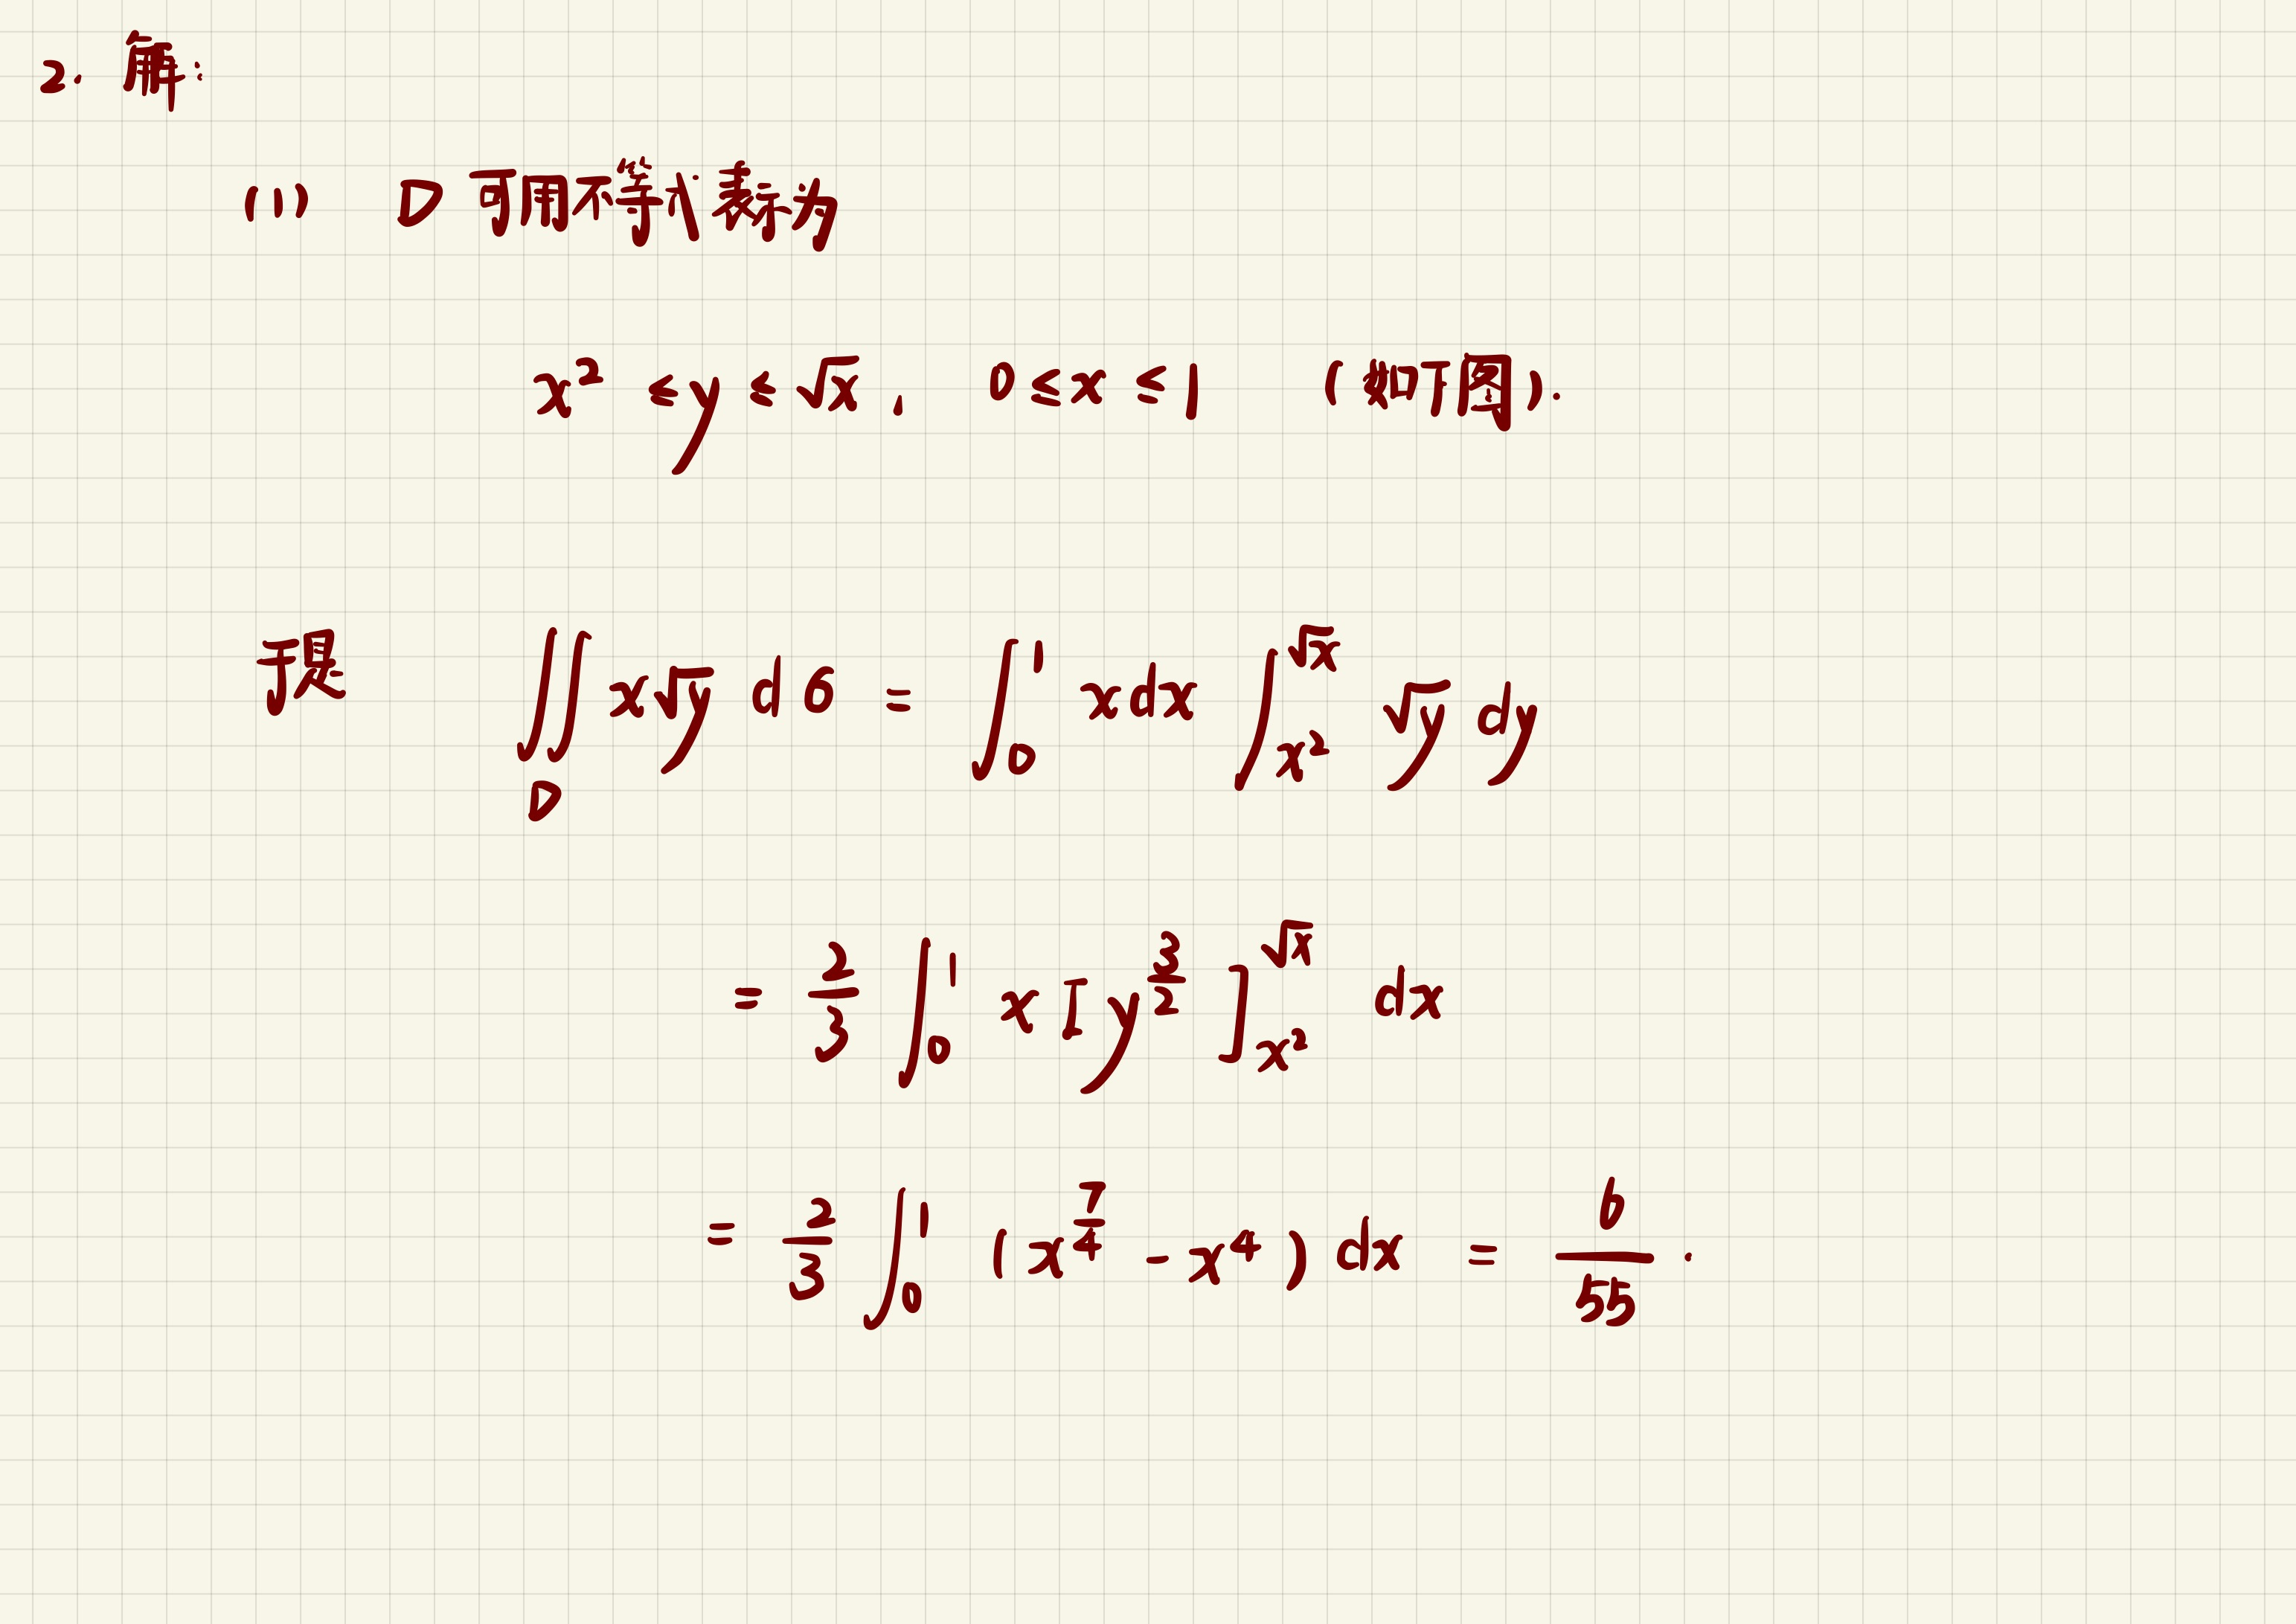 2. 解:
(1) D 可用不等式表示为
x² ≤ y ≤ √x, 0 ≤ x ≤ 1 (如下图).
于是 ∬_D x√y dσ = ∫_0^1 xdx ∫_{x²}^{√x} √y dy
= 2/3 ∫_0^1 x [y^{3/2}]_{x²}^{√x} dx
= 2/3 ∫_0^1 (x^{7/4} - x^4) dx = 6/55.